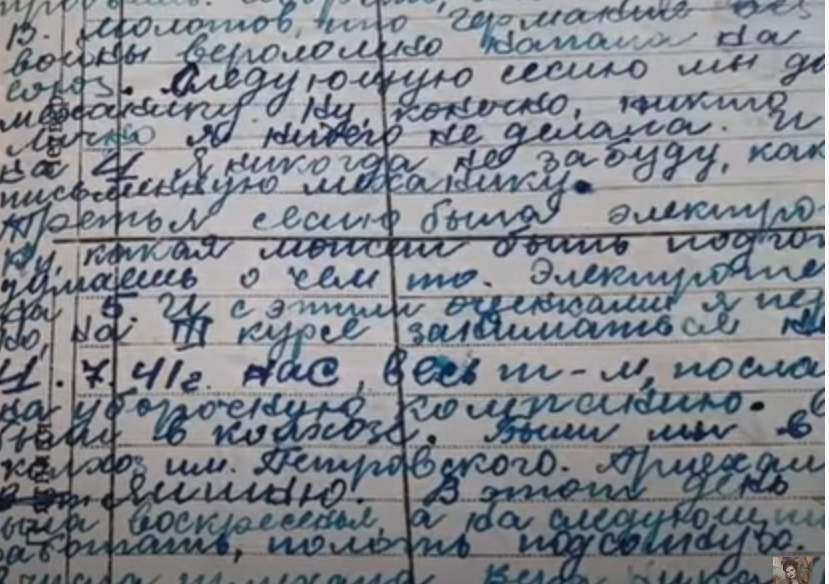 В. Молотов, что германия без
войны вероломно напала на
союз. Следующую сесию мы
механику. Ну, конечно, никто
лично я ничего не делала. И
на 4. Я никогда не забуду, как
письменную механику.
Третья сесию была электро
Ну, какая может быть подгот
думаешь о чем то. Электроте
на 5. И с этими оценками я пер
но, на III курсе заниматься
7.41г. нас, весь т-м, посла
на уборочную компанию.
были в колхозе. Были мы в
колхоз им. Петровского. Приехали
В этот день
воскресенья, а на следующий
работать, полоть подсолнуха.